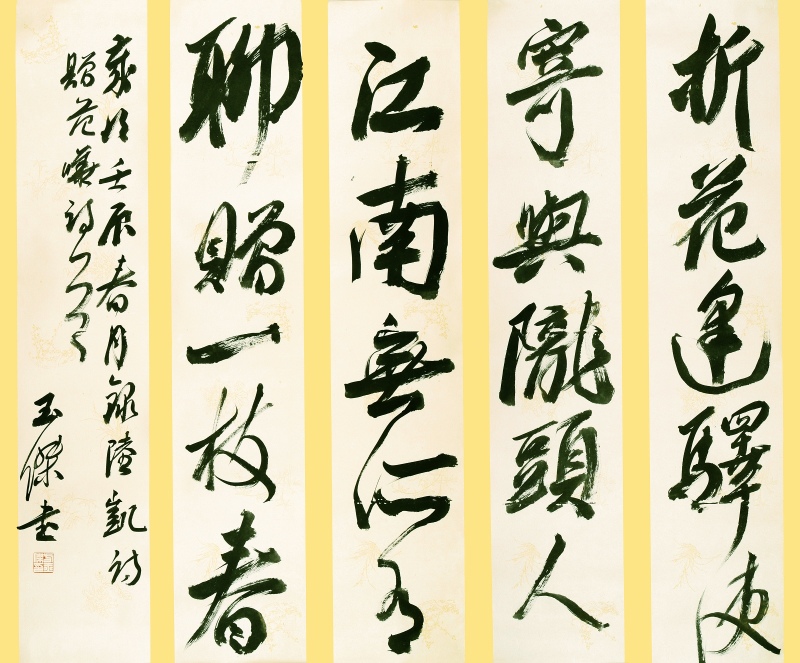 折花逢驛使
寄與隴頭人
江南無所有
聊贈一枝春
歲次壬辰春月錄陸凱詩
贈范曄詩
玉傑書